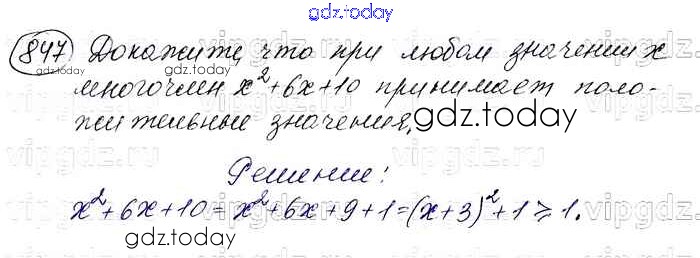 gdz.today
847 Докажите, что при любом значении x
gdz.today
многочлен x²+6x+10 принимает поло-
жительные значения.
gdz.today
Решение:
x²+6x+10=x²+6x+9+1=(x+3)²+1⩾1.
gdz.today
vipgdz.ru